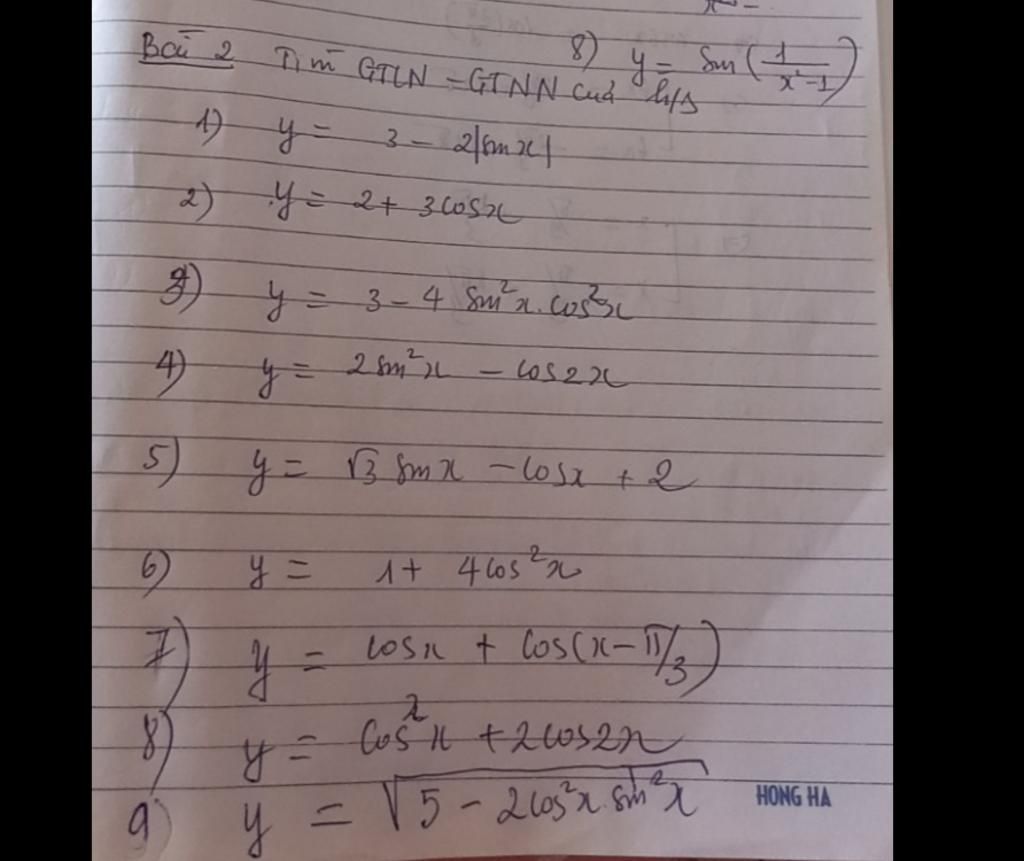 8) y = sin(1/(x²-1))
Bài 2 Tìm GTLN - GTNN của h/s
1) y = 3 - 2|sinx|
2) y = 2 + 3cosx
3) y = 3 - 4 sin²x.cos²x
4) y = 2sin²x - cos2x
5) y = √3 sinx - cosx + 2
6) y = 1 + 4cos²x
7) y = cosx + cos(x - π/3)
8) y = cos²x + 2cos2x
9) y = √(5 - 2cos²x.sin²x)
HONG HA